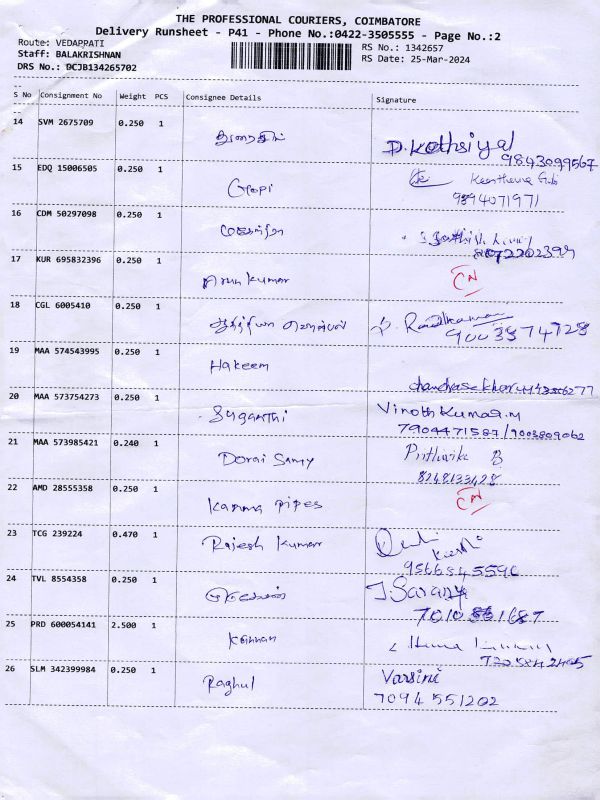 THE PROFESSIONAL COURIERS, COIMBATORE
Delivery Runsheet - P41 - Phone No.:0422-3505555 - Page No.:2
Route: VEDAPPATI
RS No.: 1342657
Staff: BALAKRISHNAN
RS Date: 25-Mar-2024
DRS No.: DCJB134265702
S No Consignment No Weight PCS Consignee Details Signature
14 SVM 2675709 0.250 1 துரைசிங்
D. Kothsiyal
9843099567
15 EDQ 15006505 0.250 1 Gopi
9894071971
16 CDM 50297098 0.250 1
17 KUR 695832396 0.250 1 Arun kumar CN
18 CGL 6005410 0.250 1
9003874728
19 MAA 574543995 0.250 1 Hakeem
20 MAA 573754273 0.250 1 Suganthi Vinoth Kumar.M
7904471587/9003809062
21 MAA 573985421 0.240 1 Dorai Samy Prithvika B
8248133428
22 AMD 28555358 0.250 1 Kanna pipes CN
23 TCG 239224 0.470 1 Rajesh Kumar
9566845590
24 TVL 8554358 0.250 1 J. Saranya
25 PRD 600054141 2.500 1 Kannan
26 SLM 342399984 0.250 1 Raghul Varsini
7094551202